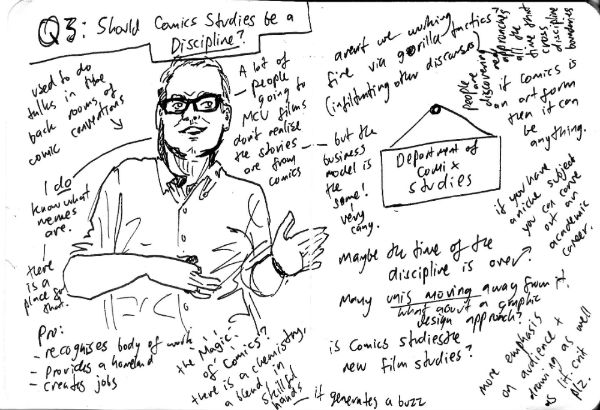 Q3: Should Comics Studies be a
Discipline?
used to do
talks in the
back rooms of
comic conventions
A lot of
people
going to
MCU films
don't realise
the stories
are from
comics
but the
business
model is
the
same!
very
cany.
I do
know what
memes
are.
there
is a
place for
that.
Pro:
- recognises body of work
- Provides a homeland
- Creates jobs
the 'Magic
of Comics'?
there is a chemistry.
a blend, in
skillful
hands
it generates a buzz
aren't we working
fine via gorilla tactics?
(infiltrating other discourses)
Department of
Comix
Studies
People
are
discovering
new
approaches
all the
time that
cross
discipline
boundaries
if Comics is
an art form
then it can
be
anything.
if you have
a niche subject
you can carve
out an
academic
career.
Maybe the time of the
discipline is over?
Many unis moving away from it!
what about a graphic
design approach?
is Comics studies the
new film studies?
more emphasis
on audience +
drawing as well
as lit. crit
plz.